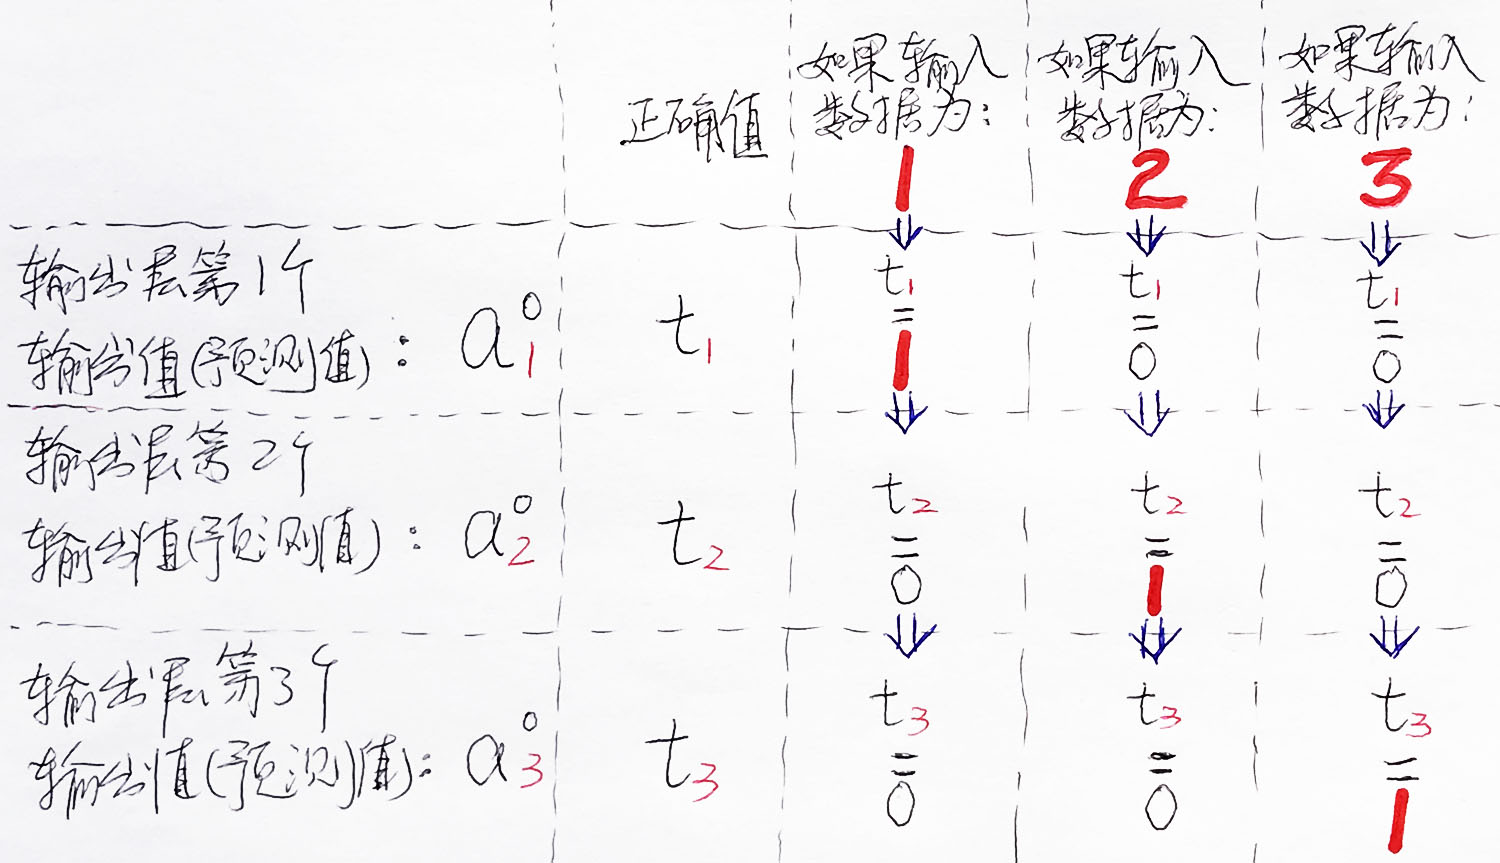 正确值
如果输入
数据为：
1
如果输入
数据为：
2
如果输入
数据为：
3
⇓ ⇓ ⇓
输出层第1个
输出值(预测值)： a₁⁰
t₁
t₁
=
1
t₁
=
0
t₁
=
0
⇓ ⇓ ⇓
输出层第2个
输出值(预测值)： a₂⁰
t₂
t₂
=
0
t₂
=
1
t₂
=
0
⇓ ⇓ ⇓
输出层第3个
输出值(预测值)： a₃⁰
t₃
t₃
=
0
t₃
=
0
t₃
=
1